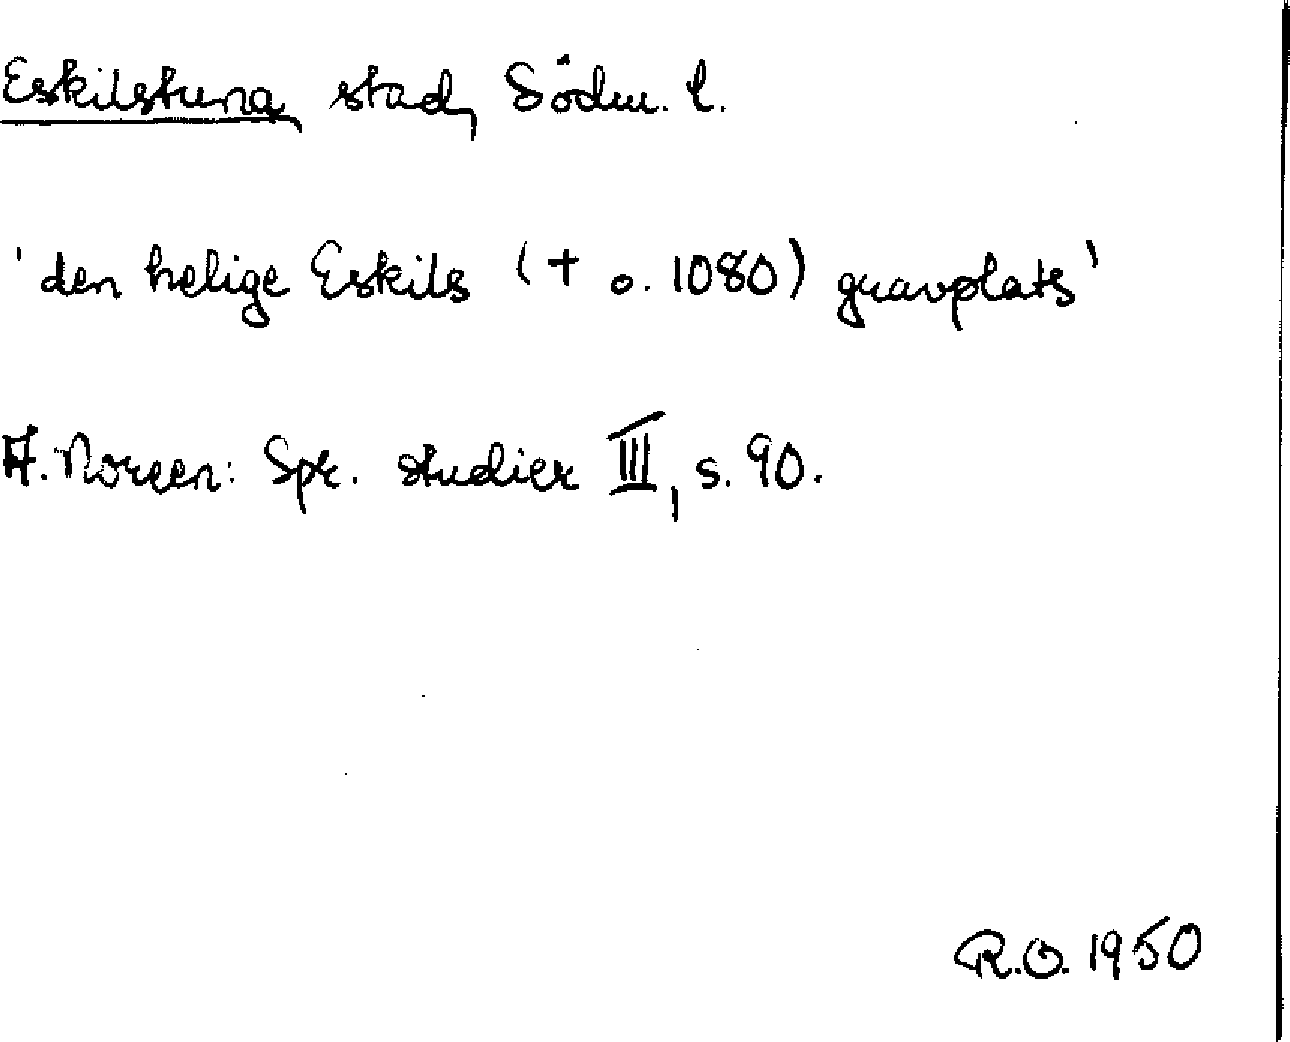 Eskilstuna stad, Södm. l.
'den helige Eskils († o. 1080) gravplats'
A. Noreen: Spr. studier III, s. 90.
R.O. 1950